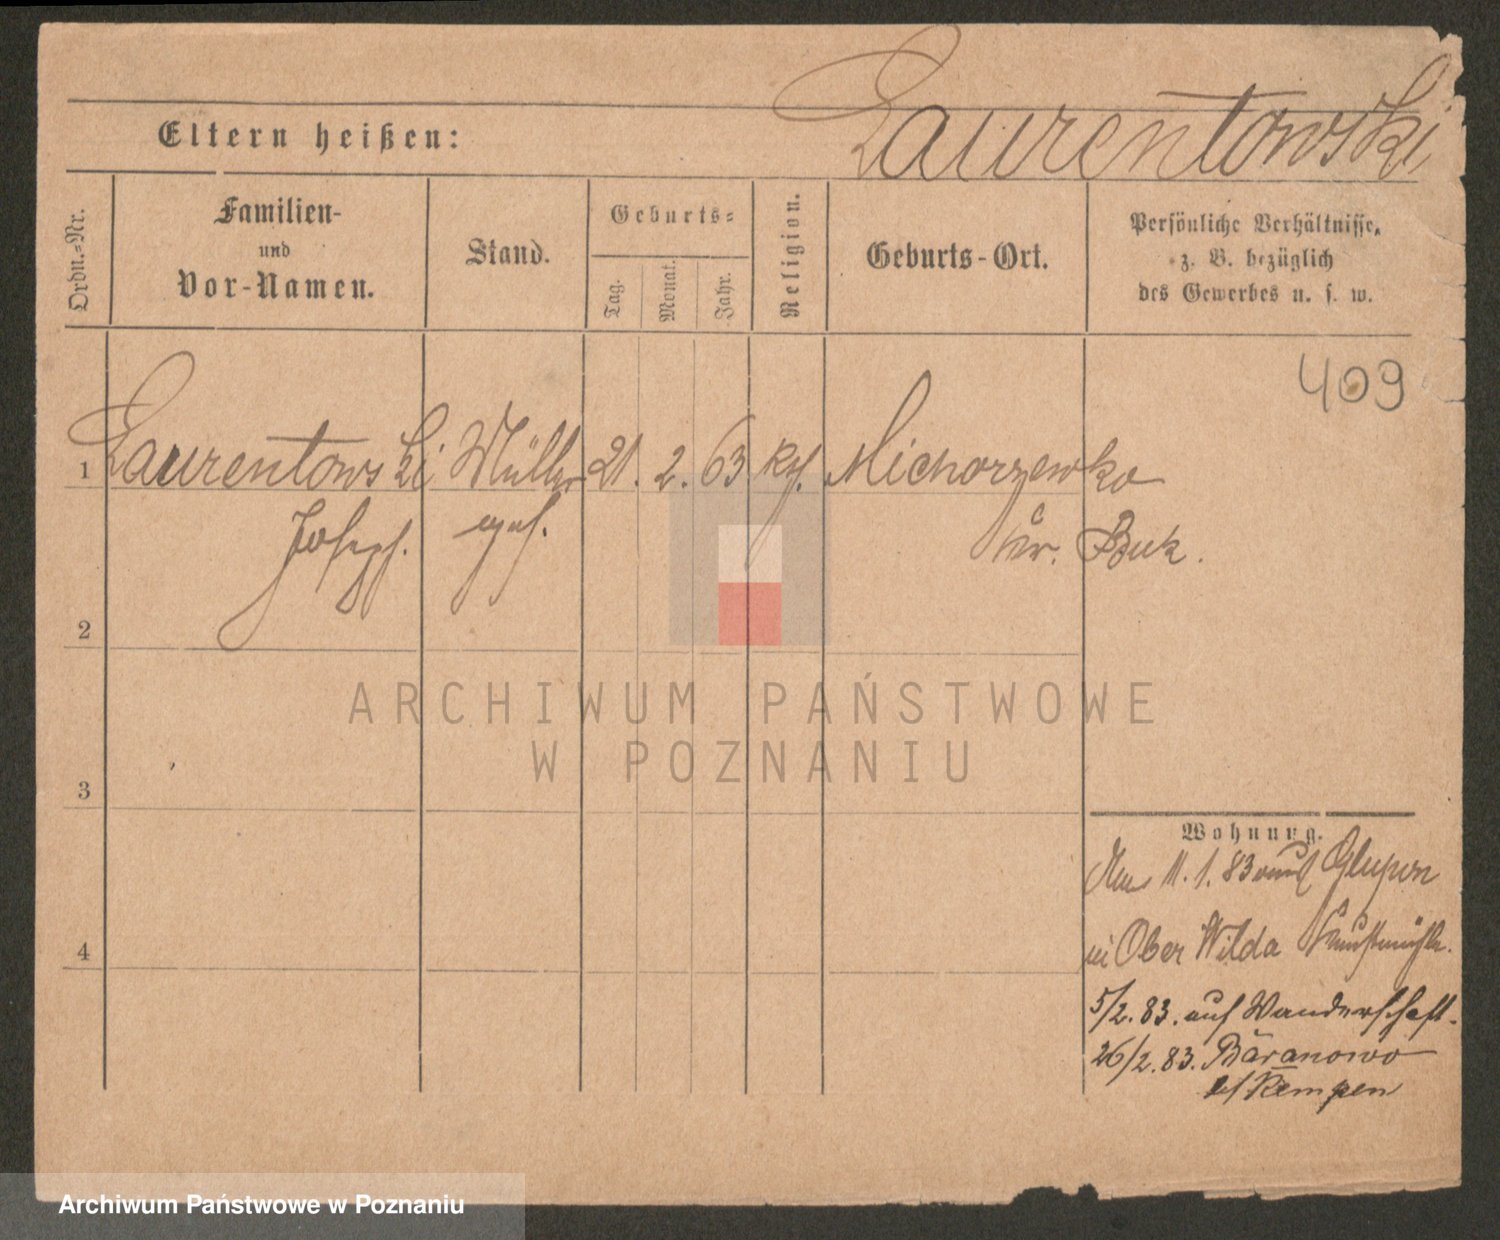 Laurentowski
Eltern heißen:
Ordn.-Nr.
Familien-
und
Vor-Namen.
Stand.
Geburts-
Tag.
Monat.
Jahr.
Religion.
Geburts-Ort.
Persönliche Verhältnisse,
z. B. bezüglich
des Gewerbes u. s. w.
409
1 Laurentowski Müller 21. 2. 63 kth. Michorzewko
Josef. Kr. Buk.
2
ARCHIWUM PAŃSTWOWE
W POZNANIU
3
Wohnung.
11. 1. 83
4
in Ober Wilda Kunstmühle.
5/2. 83. auf Wanderschaft.
26/2. 83. Baranowo
b/ Kempen
Archiwum Państwowe w Poznaniu